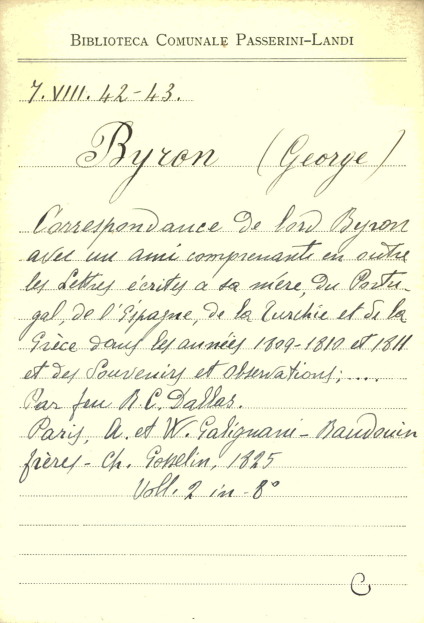 BIBLIOTECA COMUNALE PASSERINI-LANDI
7. VIII. 42-43.
Byron (George)
Correspondance de lord Byron
avec un ami comprenante en outre
les Lettres écrites a sa mère, du Portu-
gal, de l'Espagne, de la Turchie et de la
Grèce dans les années 1809-1810 et 1811
et des Souvenirs et observations; ....
Par feu R. C. Dallas.
Paris, A. et W. Galignani - Baudouin
frères - Ch. Gosselin, 1825
Voll. 2 in-8°
C